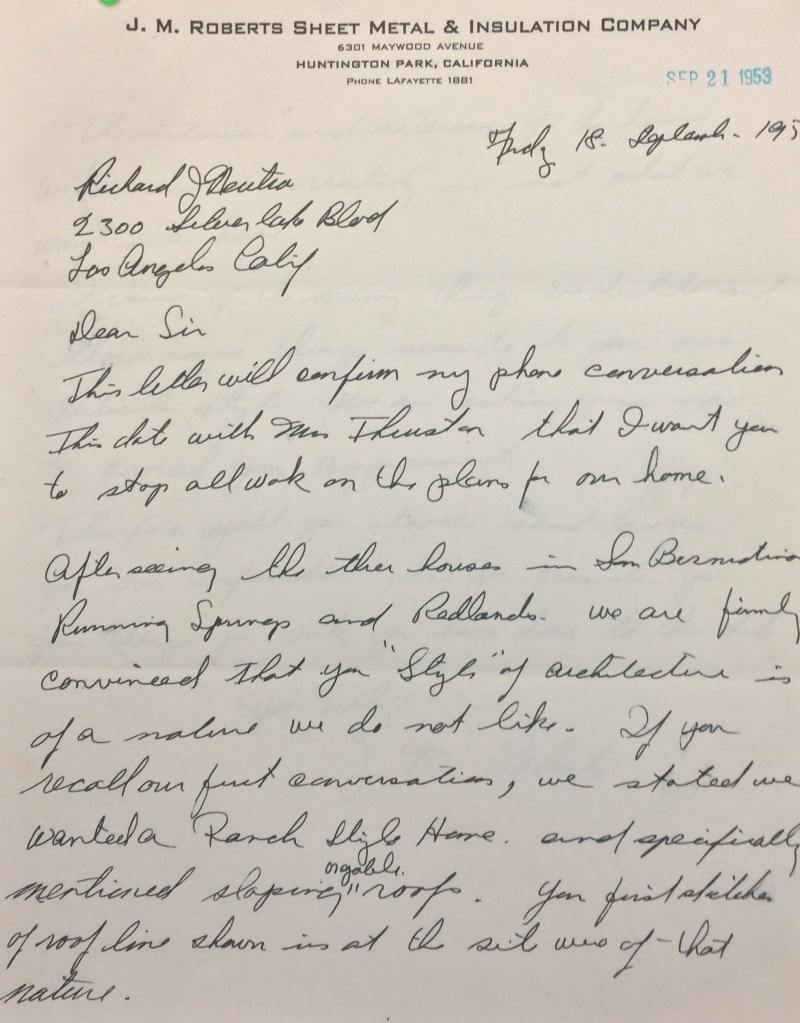 J. M. ROBERTS SHEET METAL & INSULATION COMPANY
6301 MAYWOOD AVENUE
HUNTINGTON PARK, CALIFORNIA
PHONE LAFAYETTE 1881
SEP 21 1953
18. 195
Richard J Neutra
2300 Silverlake Blvd
Los Angeles Calif.
Dear Sir
This letter will confirm my phone conversation
This date with Mrs Thurston that I want you
to stop all work on the plans for our home.
After seeing the three houses in San Bernardino
Running Springs and Redlands. we are firmly
convinced that you "Style" of architecture is
of a nature we do not like. If you
recall our first conversation, we stated we
wanted a Ranch Style Home. and specifically
or gable.
mentioned sloping "roofs. You first sketches
of roof line shown us at the site were of that
nature.